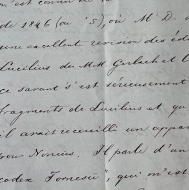 est connu de la
de 1846 (ou '5), où Mr D.
une excellent revision des éd
Lucilius de MM Gerlach et
ce savant s'est sérieusement
fragments de Lucilius et qu
il avait recueilli un appar
pour Nonius. Il parle d'un
codex Tornesii" qui m'est